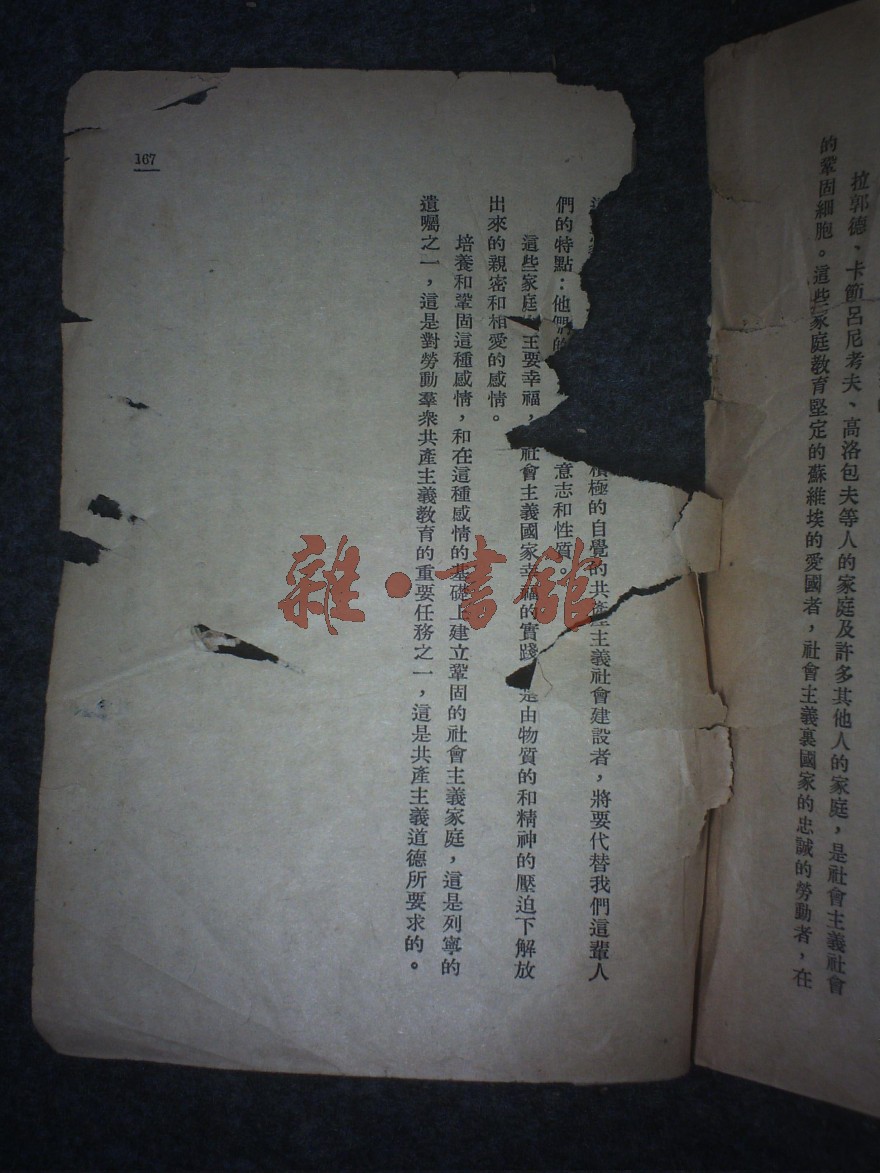 拉郭德、卡節呂尼考夫、高洛包夫等人的家庭及許多其他人的家庭，是社會主義社會
的鞏固細胞。這些家庭教育堅定的蘇維埃的愛國者，社會主義裏國家的忠誠的勞動者，在
積極的自覺的共產主義社會建設者，將要代替我們這輩人
們的特點：他們的 意志和性質。
這些家庭 主要幸福， 社會主義國家幸福的實踐 是由物質的和精神的壓迫下解放
出來的親密和相愛的感情。
培養和鞏固這種感情，和在這種感情的基礎上建立鞏固的社會主義家庭，這是列寧的
遺囑之一，這是對勞動羣衆共產主義教育的重要任務之一，這是共產主義道德所要求的。
167
雜·書館